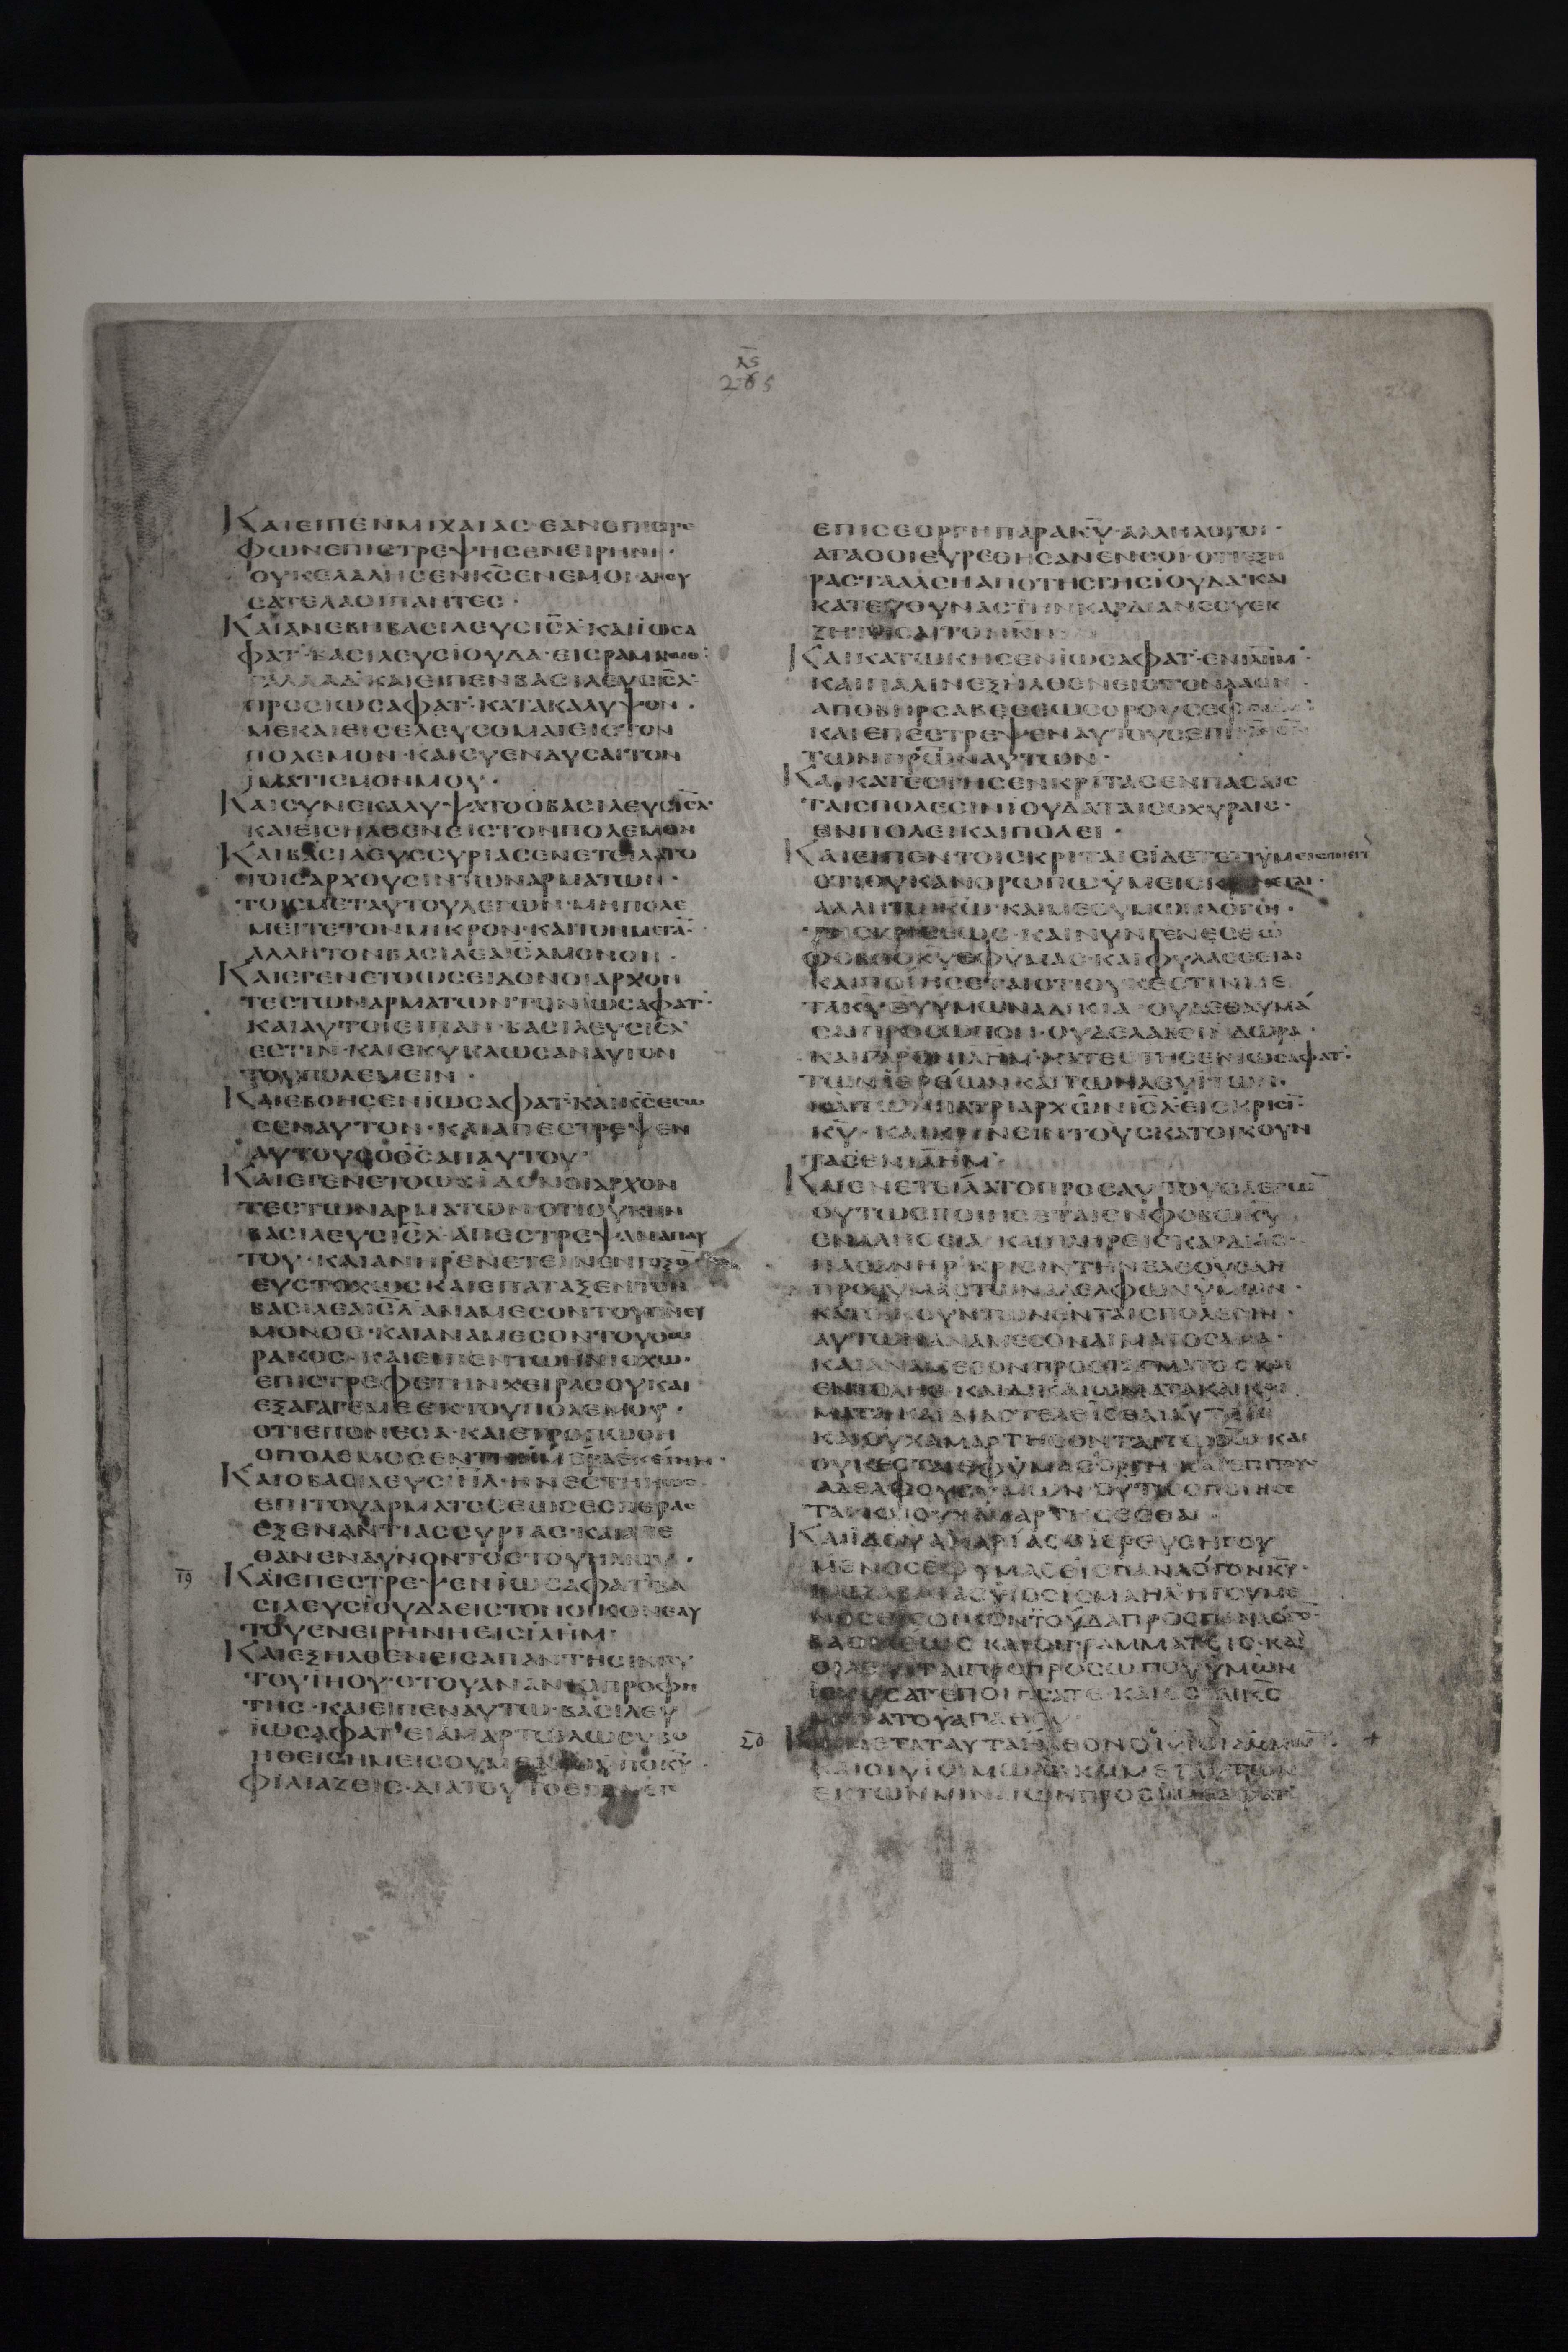 λς
265
ΚΑΙΕΙΠΕΝΜΙΧΑΙΑС·ΕΑΝΕΠΙСΤΡΕ
ΦΩΝΕΠΙСΤΡΕΨΗСΕΝΕΙΡΗΝΗ·
ΟΥΚΕΛΑΛΗСΕΝΚ̅С̅ΕΝΕΜΟΙ·ΑΚΟΥ
СΑΤΕΛΑΟΙΠΑΝΤΕС·
ΚΑΙΑΝΕΒΗΒΑСΙΛΕΥСΙ̅Η̅Λ̅·ΚΑΙΪΩСΑ
ΦΑΤ·ΒΑСΙΛΕΥСΪΟΥΔΑ·ΕΙСΡΑΜ
ΓΑΛΑΑΔ·ΚΑΙΕΙΠΕΝΒΑСΙΛΕΥСΙ̅Η̅Λ̅
ΠΡΟСΙΩСΑΦΑΤ·ΚΑΤΑΚΑΛΥΨΟΝ·
ΜΕΚΑΙΕΙСΕΛΕΥСΟΜΑΙΕΙСΤΟΝ
ΠΟΛΕΜΟΝ·ΚΑΙСΥΕΝΔΥСΑΙΤΟΝ
ΪΜΑΤΙСΜΟΝΜΟΥ·
ΚΑΙСΥΝΕΚΑΛΥΨΑΤΟΟΒΑСΙΛΕΥСΙ̅Η̅Λ̅·
ΚΑΙΕΙСΗΛΘΕΝΕΙСΤΟΝΠΟΛΕΜΟΝ
ΚΑΙΒΑСΙΛΕΥССΥΡΙΑСΕΝΕΤΕΙΛΑΤΟ
ΤΟΙСΑΡΧΟΥСΙΝΤΩΝΑΡΜΑΤΩΝ·
ΤΟΙСΜΕΤΑΥΤΟΥΛΕΓΩΝ·ΜΗΠΟΛΕ
ΜΕΙΤΕΤΟΝΜΙΚΡΟΝ·ΚΑΙΤΟΝΜΕΓΑ̅·
ΑΛΛΗΤΟΝΒΑСΙΛΕΑΙ̅Η̅Λ̅ΜΟΝΟΝ·
ΚΑΙΕΓΕΝΕΤΟΩСΕΙΔΟΝΟΙΑΡΧΟΝ
ΤΕСΤΩΝΑΡΜΑΤΩΝΤΟΝΪΩСΑΦΑΤ·
ΚΑΙΑΥΤΟΙΕΙΠΑΝ·ΒΑСΙΛΕΥСΙ̅Η̅Λ̅
ΕСΤΙΝ·ΚΑΙΕΚΥΚΛΩСΑΝΑΥΤΟΝ
ΤΟΥΠΟΛΕΜΕΙΝ·
ΚΑΙΕΒΟΗСΕΝΪΩСΑΦΑΤ·ΚΑΙΚ̅С̅ΕСΩ
СΕΝΑΥΤΟΝ·ΚΑΙΑΠΕСΤΡΕΨΕΝ
ΑΥΤΟΥСΟΘ̅С̅ΑΠΑΥΤΟΥ·
ΚΑΙΕΓΕΝΕΤΟΩСΙΔΟΝΟΙΑΡΧΟΝ
ΤΕСΤΩΝΑΡΜΑΤΩΝΟΤΙΟΥΚΗΝ
ΒΑСΙΛΕΥСΙ̅Η̅Λ̅·ΑΠΕСΤΡΕΨΑΝΑΠΑΥ
ΤΟΥ·ΚΑΙΑΝΗΡΕΝΕΤΕΙΝΕΝΤΟΞΟ̅
ΕΥСΤΟΧΩСΚΑΙΕΠΑΤΑΞΕΝΤΟΝ
ΒΑСΙΛΕΑΙ̅Η̅Λ̅ΑΝΑΜΕСΟΝΤΟΥΠΝΕΥ
ΜΟΝΟС·ΚΑΙΑΝΑΜΕСΟΝΤΟΥΘΩ
ΡΑΚΟС·ΚΑΙΕΙΠΕΝΤΩΗΝΙΟΧΩ·
ΕΠΙСΤΡΕΦΕΤΗΝΧΕΙΡΑСΟΥΚΑΙ
ΕΞΑΓΑΓΕΜΕΕΚΤΟΥΠΟΛΕΜΟΥ·
ΟΤΙΕΠΟΝΕСΑ·ΚΑΙΕΤΡΟΠΩΘΗ
ΟΠΟΛΕΜΟСΕΝΤΗΗΜΕΡΑΕΚΕΙΝΗ·
ΚΑΙΟΒΑСΙΛΕΥСΙ̅Η̅Λ̅·ΗΝΕСΤΗΚΩС
ΕΠΙΤΟΥΑΡΜΑΤΟСΕΩСΕСΠΕΡΑС
ΕΞΕΝΑΝΤΙΑССΥΡΙΑС·ΚΑΙΑΠΕ
ΘΑΝΕΝΔΥΝΟΝΤΟСΤΟΥΗΛΙΟΥ·
19 ΚΑΙΕΠΕСΤΡΕΨΕΝΪΩСΑΦΑΤ·ΒΑ
СΙΛΕΥСΪΟΥΔΑΕΙСΤΟΝΟΙΚΟΝΕΑΥ
ΤΟΥΕΝΕΙΡΗΝΗΕΙСΙ̅Λ̅Η̅Μ̅·
ΚΑΙΕΞΗΛΘΕΝΕΙСΑΠΑΝΤΗСΙΝΑΥ
ΤΟΥΪΗΟΥ·ΟΤΟΥΑΝΑΝΙΟΠΡΟΦΗ
ΤΗС·ΚΑΙΕΙΠΕΝΑΥΤΩ·ΒΑСΙΛΕΥ
ΪΩСΑΦΑΤ·ΕΙΑΜΑΡΤΩΛΩСΥΒΟ
ΗΘΕΙС
ΦΙΛΙΑΖΕΙС·ΔΙΑΤΟΥΤΟ
ΕΠΙСΕΟΡΓΗΠΑΡΑΚ̅Υ̅·ΑΛΛΗΛΟΓΟΙ·
ΑΓΑΘΟΙΕΥΡΕΘΗСΑΝΕΝСΟΙ·ΟΤΙΕΞΗ
ΡΑСΤΑΑΛСΗΑΠΟΤΗСΓΗСΪΟΥΔΑ·ΚΑΙ
ΚΑΤΕΥΘΥΝΑСΤΗΝΚΑΡΔΙΑΝСΟΥΕΚ
ΖΗΤΗСΑΙΤΟΝΚ̅Ν̅·
ΚΑΙΚΑΤΩΚΗСΕΝΪΩСΑΦΑΤ·ΕΝΙ̅Λ̅Η̅Μ̅·
ΚΑΙΠΑΛΙΝΕΞΗΛΘΕΝΕΙСΤΟΝΛΑΟΝ·
ΑΠΟΒΗΡСΑΒΕΕΕΩСΟΡΟΥС
ΚΑΙΕΠΕСΤΡΕΨΕΝΑΥΤΟΥСΕΠΙ
ΤΩΝΠ̅Ρ̅Ω̅Ν̅ΑΥΤΩΝ·
ΚΑΙΚΑΤΕСΤΗСΕΝΚΡΙΤΑСΕΝΠΑСΑΙС
ΤΑΙСΠΟΛΕСΙΝΪΟΥΔΑΤΑΙСΟΧΥΡΑΙС·
ΕΝΠΟΛΕΙΚΑΙΠΟΛΕΙ·
ΚΑΙΕΙΠΕΝΤΟΙСΚΡΙΤΑΙСΪΔΕΤΕΤΙΥΜΕΙСΠΟΙΕΙΤΕ
ΟΤΙΟΥΚΑΝΘΡΩΠΩΥΜΕΙС
ΑΛΛΗΤΩΚ̅Ω̅·ΚΑΙΜΕΘΥΜΩΝΛΟΓΟΙ·
ΤΗСΚΡΙСΕΩС·ΚΑΙΝΥΝΓΕΝΕСΘΩ
ΦΟΒΟСΚ̅Υ̅ΕΦΥΜΑС·ΚΑΙΦΥΛΑССΕΤΑΙ
ΚΑΙΠΟΙΗСΕΤΑΙΟΤΙΟΥΚΕСΤΙΝΜΕ
ΤΑΚ̅Υ̅Θ̅Υ̅ΥΜΩΝΑΔΙΚΙΑ·ΟΥΔΕΘΑΥΜΑ
СΑΙΠΡΟСΩΠΟΝ·ΟΥΔΕΛΑΒΕΙΝΔΩΡΑ·
ΚΑΙΓΑΡΕΝΙ̅Λ̅Η̅Μ̅·ΚΑΤΕСΤΗСΕΝΙΩСΑΦΑΤ·
ΤΩΝΪΕΡΕΩΝΚΑΙΤΩΝΛΕΥΙΤΩΝ·
ΚΑΙΤΩΝΠΑΤΡΙΑΡΧΩΝΙ̅Η̅Λ̅·ΕΙСΚΡΙСΙ̅
Κ̅Υ̅·ΚΑΙΚΡΙΝΕΙΝΤΟΥСΚΑΤΟΙΚΟΥΝ
ΤΑСΕΝΙ̅Λ̅Η̅Μ̅·
ΚΑΙΕΝΕΤΕΙΛΑΤΟΠΡΟСΑΥΤΟΥСΛΕΓΩ̅
ΟΥΤΩСΠΟΙΗСΕΤΑΙΕΝΦΟΒΩΚ̅Υ̅
ΕΝΑΛΗΘΕΙΑ·ΚΑΙΠΛΗΡΕΙСΚΑΡΔΙΑС·
ΠΑСΑΝΗΡΚΡΙСΙΝΤΗΝΕΛΘΟΥСΑΝ
ΠΡΟСΥΜΑСΤΩΝΑΔΕΛΦΩΝΥΜΩΝ·
ΚΑΤΟΙΚΟΥΝΤΩΝΕΝΤΑΙСΠΟΛΕСΙΝ·
ΑΥΤΩΝΑΝΑΜΕСΟΝΑΙΜΑΤΟСΑΙΜΑ·
ΚΑΙΑΝΑΜΕСΟΝΠΡΟСΤΑΓΜΑΤΟСΚΑΙ
ΕΝΤΟΛΗС·ΚΑΙΔΙΚΑΙΩΜΑΤΑΚΑΙΚΡΙ
ΜΑΤΑ·ΚΑΙΔΙΑСΤΕΛΕΙСΘΑΙΑΥΤΟΙС
ΚΑΙΟΥΧΑΜΑΡΤΗСΟΝΤΑΙΤΩΚ̅Ω̅ΚΑΙ
ΟΥΚΕСΤΑΙΕΦΥΜΑСΟΡΓΗ·ΚΑΙΕΠΙΤΟΥС
ΑΔΕΛΦΟΥСΥΜΩΝ·ΟΥΤΩСΠΟΙΗСΕ
ΤΑΙΚΑΙΟΥΧΑΜΑΡΤΗСΕСΘΑΙ·
ΚΑΙΪΔΟΥΑΜΑΡΙΑСΟΪΕΡΕΥСΗΓΟΥ
ΜΕΝΟСΕΦΥΜΑСΕΙСΠΑΝΛΟΓΟΝΚ̅Υ̅·
ΥΪΟСΙСΜΑΗΛΗΓΟΥΜΕ
ΝΟСΕΙСΟΙΚΟΝΪΟΥΔΑΠΡΟСΠΑΝΛΟΓΟ̅·
ΒΑСΙΛΕΩС·ΚΑΙΟΙΓΡΑΜΜΑΤΕΙС·ΚΑΙ
ΟΙΛΕΥΙΤΑΙΠΡΟΠΡΟСΩΠΟΥΥΜΩΝ
ΙСΧΥСΑΤΕΠΟΙΗСΑΤΕ·ΚΑΙΕСΤΑΙΚ̅С̅
ΜΕΤΑΤΟΥΑΓΑΘΟΥ
20 ΚΑΙΜΕΤΑΤΑΥΤΑΗΛΘΟΝΟΙΥΙΟΙ +
ΚΑΙΟΙΥΙΟΙΑΜΜΩΝ·ΚΑΙΜΕΤΑΥΤΩΝ
ΕΚΤΩΝΜΙΝΑΙΩΝΠΡΟСΪΩСΑΦΑΤ